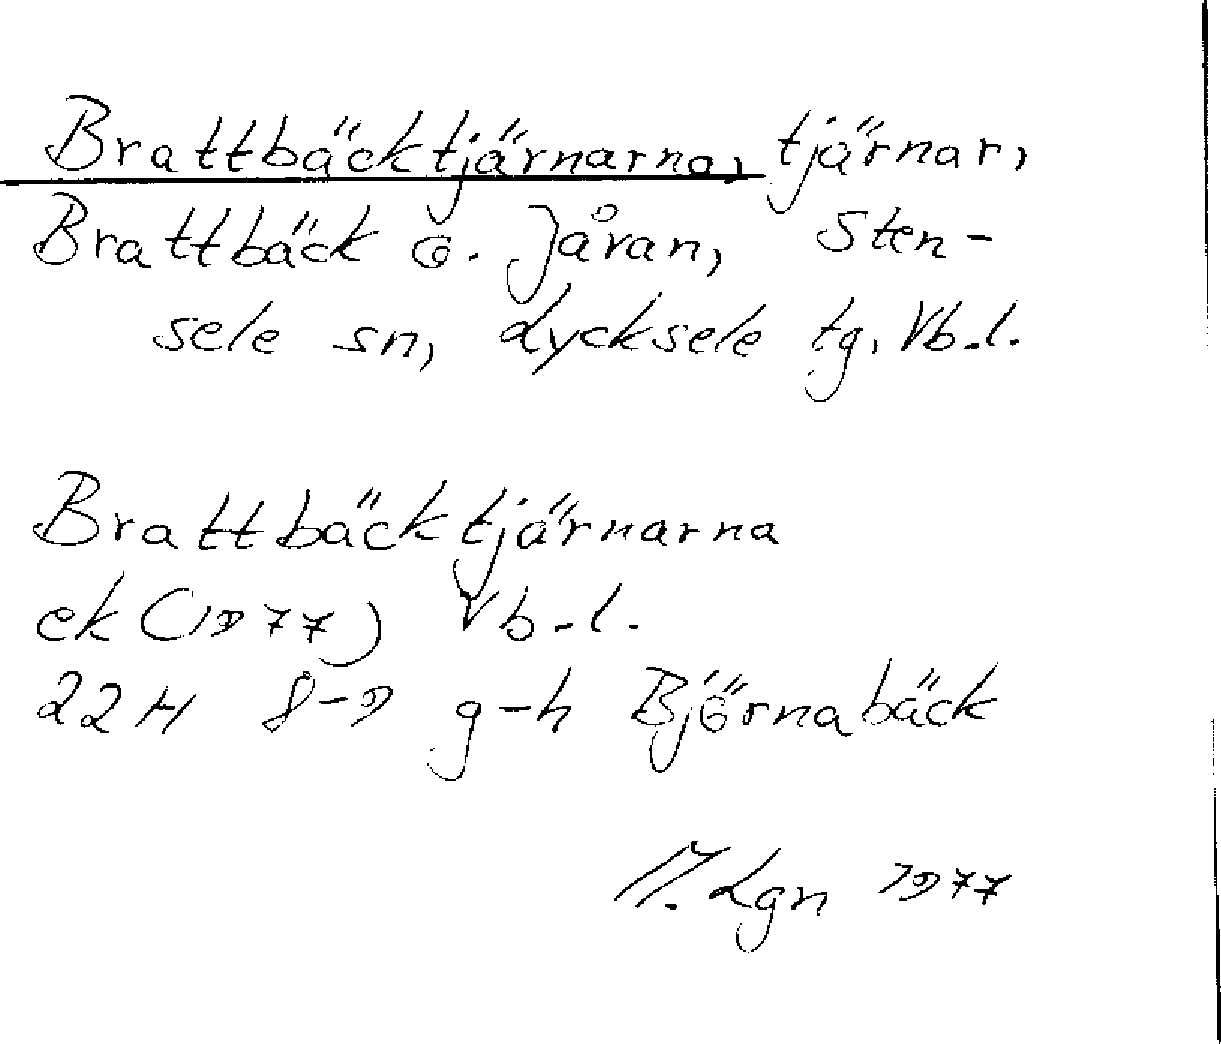 Brattbäcktjärnarna, tjärnar,
Brattbäck o. Jåran, Sten-
sele sn, Lycksele tg, Vb.l.
Brattbäcktjärnarna
ek (1977) Vb.l.
22H 8-9 g-h Björnabäck
Lgn 1977